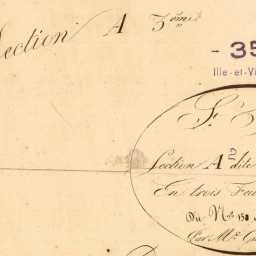 Section A 3ème
- 35
Ille-et-Vi
St
Section A2 dite
En trois Feu
Du Nos 150
Par Mr G